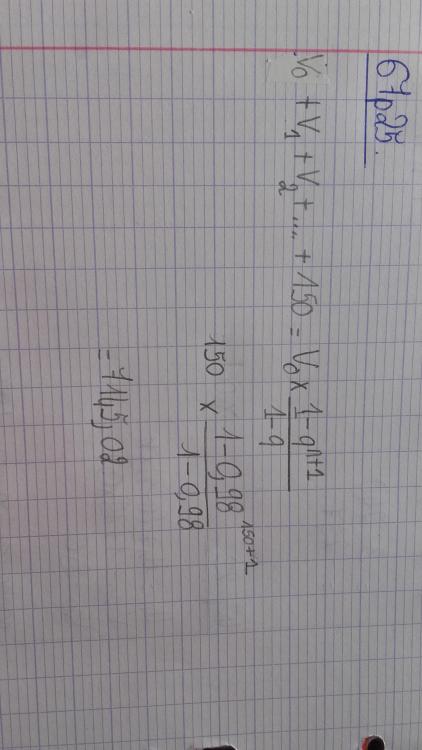 67 p 25.
V₀ + V₁ + V₂ + .... + 150 = V₀ × (1-qⁿ⁺¹)/(1-q)
150 × (1-0,98¹⁵⁰⁺¹)/(1-0,98)
= 7145,02